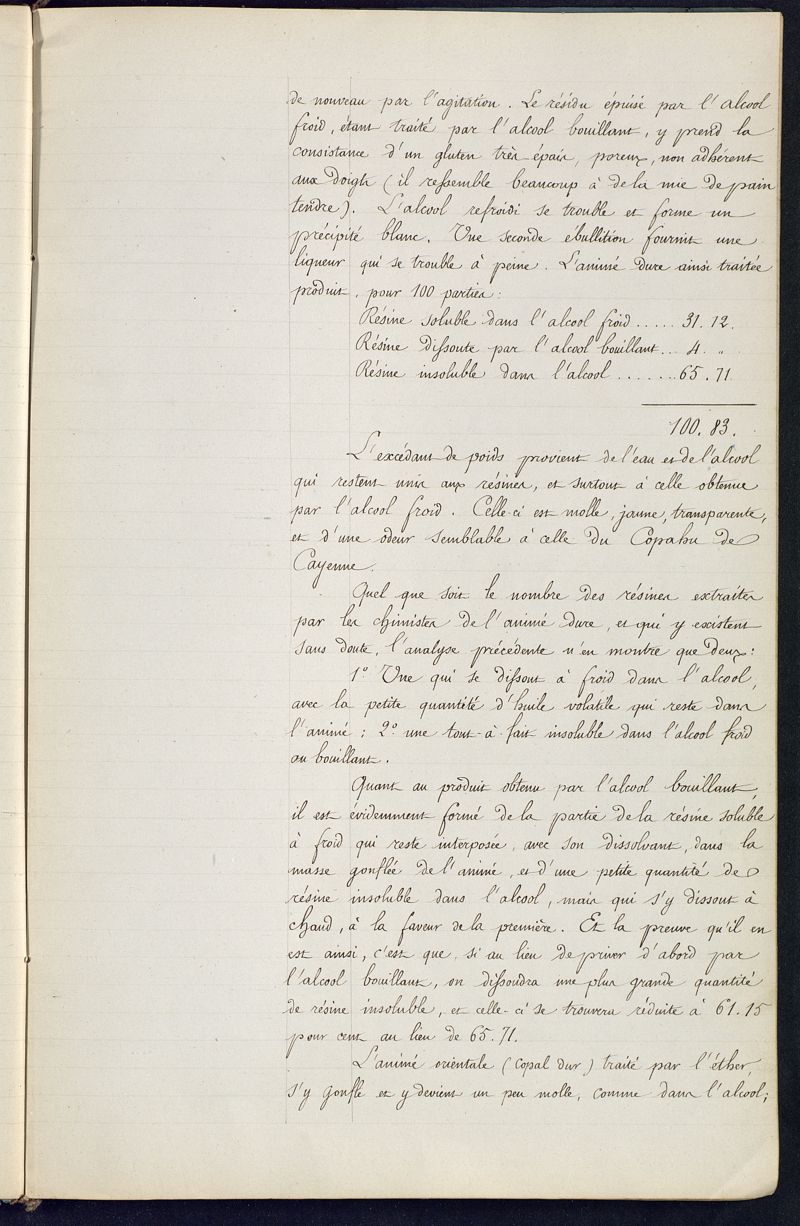 de nouveau par l'agitation. Le résidu épuisé par l'alcool
froid, étant traité par l'alcool bouillant, y prend la
consistance d'un gluten très épais, poreux, non adhérent
aux doigts (il ressemble beaucoup à de la mie de pain
tendre). L'alcool refroidi se trouble et forme un
précipité blanc. Une seconde ébullition fournit une
liqueur qui se trouble à peine. L'animé dure ainsi traitée
produit, pour 100 parties :
Résine soluble dans l'alcool froid ...... 31.12.
Résine dissoute par l'alcool bouillant... 4. „
Résine insoluble dans l'alcool ....... 65.71
100.83.
L'excédant de poids provient de l'eau et de l'alcool
qui restent unis aux résines, et surtout à celle obtenue
par l'alcool froid. Celle-ci est molle, jaune, transparente,
et d'une odeur semblable à celle du Copahu de
Cayenne.
Quel que soit le nombre des résines extraites
par les chimistes de l'animé dure, et qui y existent
sans doute, l'analyse précédente n'en montre que deux :
1° Une qui se dissout à froid dans l'alcool,
avec la petite quantité d'huile volatile qui reste dans
l'animé ; 2° une tout-à-fait insoluble dans l'alcool froid
ou bouillant.
Quant au produit obtenu par l'alcool bouillant,
il est évidemment formé de la partie de la résine soluble
à froid qui reste interposée, avec son dissolvant, dans la
masse gonflée de l'animé, et d'une petite quantité de
résine insoluble dans l'alcool, mais qui s'y dissout à
chaud, à la faveur de la première. Et la preuve qu'il en
est ainsi, c'est que, si au lieu de priver d'abord par
l'alcool bouillant, on dissoudra une plus grande quantité
de résine insoluble, et celle-ci se trouvera réduite à 61.15
pour cent au lieu de 65.71.
L'animé orientale (copal dur) traité par l'éther,
s'y gonfle et y devient un peu molle, comme dans l'alcool;